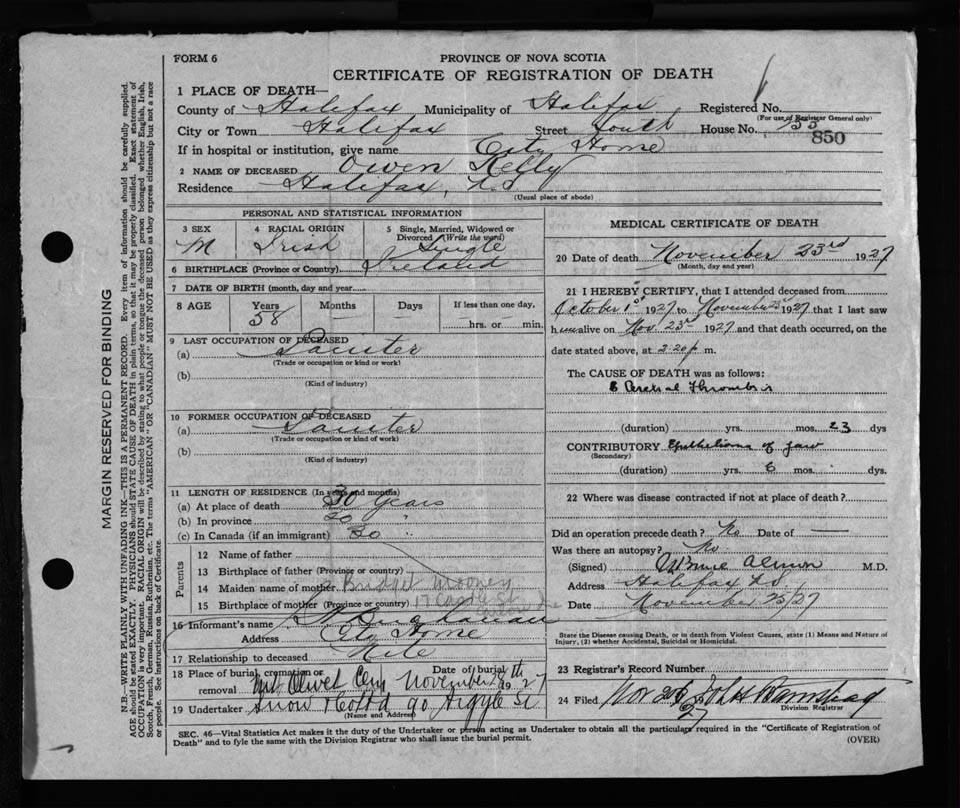 FORM 6
PROVINCE OF NOVA SCOTIA
CERTIFICATE OF REGISTRATION OF DEATH
1 PLACE OF DEATH—
County of Halifax Municipality of Halifax Registered No.
(For use of Registrar General only)
City or Town Halifax Street South House No.
850
If in hospital or institution, give name City Home
2 NAME OF DECEASED Owen Kelly
Residence Halifax, N.S
(Usual place of abode)
PERSONAL AND STATISTICAL INFORMATION
3 SEX M
4 RACIAL ORIGIN Irish
5 Single, Married, Widowed or Divorced (Write the word) Single
6 BIRTHPLACE (Province or Country) Ireland
7 DATE OF BIRTH (month, day and year)
8 AGE Years 58 Months — Days — If less than one day, hrs. or min.
9 LAST OCCUPATION OF DECEASED
(a) Painter
(Trade or occupation or kind of work)
(b)
(Kind of industry)
10 FORMER OCCUPATION OF DECEASED
(a) Painter
(Trade or occupation or kind of work)
(b)
(Kind of industry)
11 LENGTH OF RESIDENCE (In years and months)
(a) At place of death 30 years
(b) In province "
(c) In Canada (if an immigrant) 30 "
Parents
12 Name of father
13 Birthplace of father (Province or country)
14 Maiden name of mother Bridget Mooney
15 Birthplace of mother (Province or country)
16 Informant's name
Address City Home
17 Relationship to deceased
18 Place of burial, cremation or removal Mt Olivet Cem Date of burial November 28th 1927
19 Undertaker Snow & Co Ltd 90 Argyle St
(Name and Address)
MEDICAL CERTIFICATE OF DEATH
20 Date of death November 23rd 1927
(Month, day and year)
21 I HEREBY CERTIFY, that I attended deceased from
October 1st 1927 to November 23rd 1927 that I last saw
him alive on Nov. 23rd 1927 and that death occurred, on the
date stated above, at 2.20 p m.
The CAUSE OF DEATH was as follows:
Cerebral Thrombosis
(duration) yrs. mos. 23 dys
CONTRIBUTORY Epithelioma of jaw
(Secondary)
(duration) yrs. 6 mos. dys.
22 Where was disease contracted if not at place of death?
Did an operation precede death? No Date of —
Was there an autopsy? No
(Signed) Almon M.D.
Address Halifax N.S.
Date November 25/27
State the Disease causing Death, or in death from Violent Causes, state (1) Means and Nature of
Injury, (2) whether Accidental, Suicidal or Homicidal.
23 Registrar's Record Number
24 Filed Nov 26/27
Division Registrar
SEC. 46—Vital Statistics Act makes it the duty of the Undertaker or person acting as Undertaker to obtain all the particulars required in the "Certificate of Registration of
Death" and to fyle the same with the Division Registrar who shall issue the burial permit.
(OVER)
MARGIN RESERVED FOR BINDING
N.B.—WRITE PLAINLY WITH UNFADING INK—THIS IS A PERMANENT RECORD. Every item of information should be carefully supplied.
AGE should be stated EXACTLY. PHYSICIANS should STATE CAUSE OF DEATH in plain terms, so that it may be properly classified. Exact statement of
OCCUPATION is very important. RACIAL ORIGIN will be described by stating to what people or tongue the deceased person belonged whether English, Irish,
Scotch, French, German, Russian, Ruthenian, etc. The terms "AMERICAN" or "CANADIAN" MUST NOT BE USED as they express citizenship but not a race
or people. See instructions on back of Certificate.